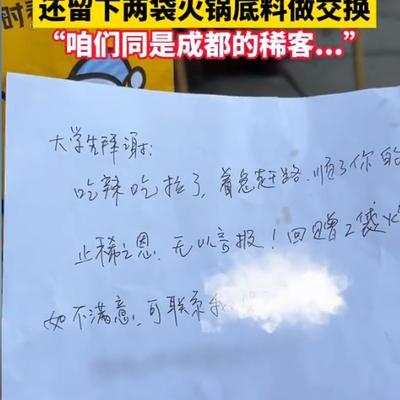 还留下两袋火锅底料做交换
“咱们同是成都的稀客...”
大学拜谢:
吃辣吃拉了,着急赶路.顺了你的
止稀之恩,无以言报!回赠2袋火
如不满意,可联系我